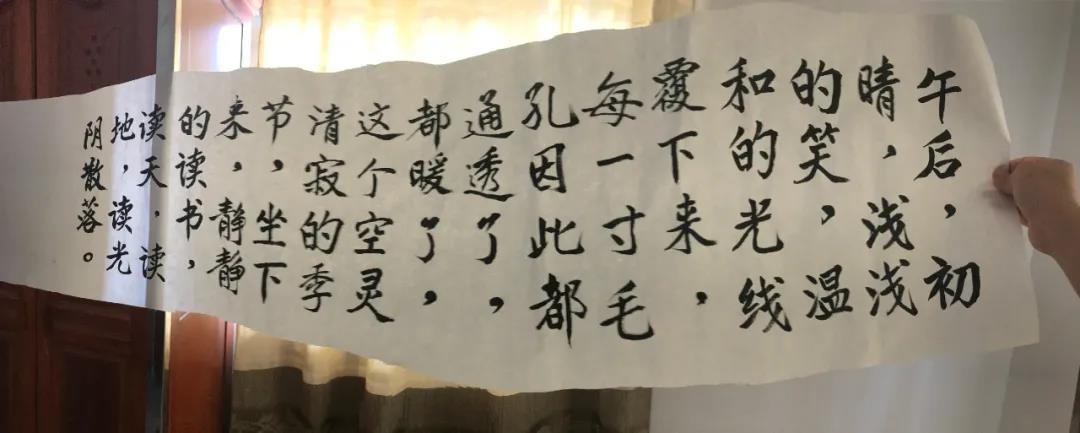 午后，初
晴，浅浅
的笑，温
和的光线
覆下来，
每一寸毛
孔因此都
通透了，
都暖了，
这个空灵
清寂的季
节，坐下
来，静静
的读书，
读天，读
地，读光
阴散落。